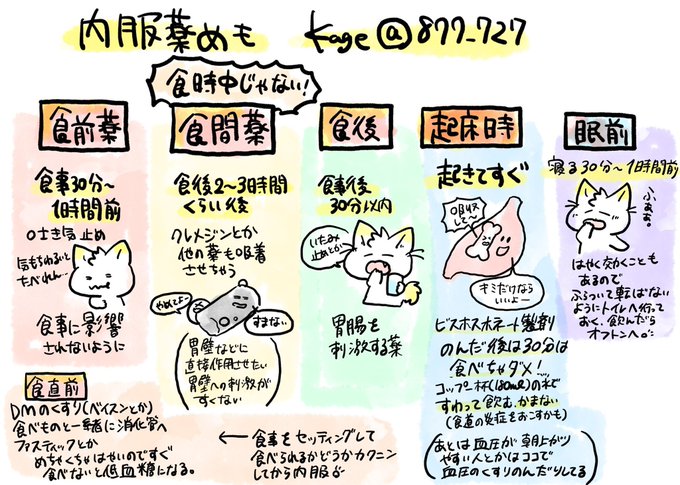 内服薬めも Kage@877_727
食時中じゃない!
食前薬
食事30分〜
1日時間前
吐き気止め
気もちわるいと
たべれん…
食事に影響
されないように
食間薬
食後2〜3時間
くらい後
クレメジンとか
他の薬も吸着
させちゃう
やめてよォ
すまない
胃壁などに
直接作用させたい
胃壁への刺激が
すくない
食後
食事後
30分以内
いたみ
止めとか
胃腸を
刺激する薬
起床時
起きてすぐ
吸収
して〜
キミだけなら
いいよー
ビスホスホネート製剤
のんだ後は30分は
食べちゃダメ!
コップ一杯(180ml)の水で
すわって飲む、かまない
(食道の炎症をおこすかも)
あとは血圧が朝上がり
やすい人とかはココで
血圧のくすりのんだりしてる
眠前
寝る30分〜1時間前
ふぁぁ。
はやく効くことも
あるので
ふらついて転ばない
ようにトイレへ行って
おく、飲んだら
オフトンへ。
食直前
DMのくすり(ベイスンとか)
食べものと一緒に消化管へ
ファスティックとか
めちゃくちゃはやいのですぐ
食べないと低血糖になる。
← 食事をセッティングして
食べられるかどうかカクニン
してから内服